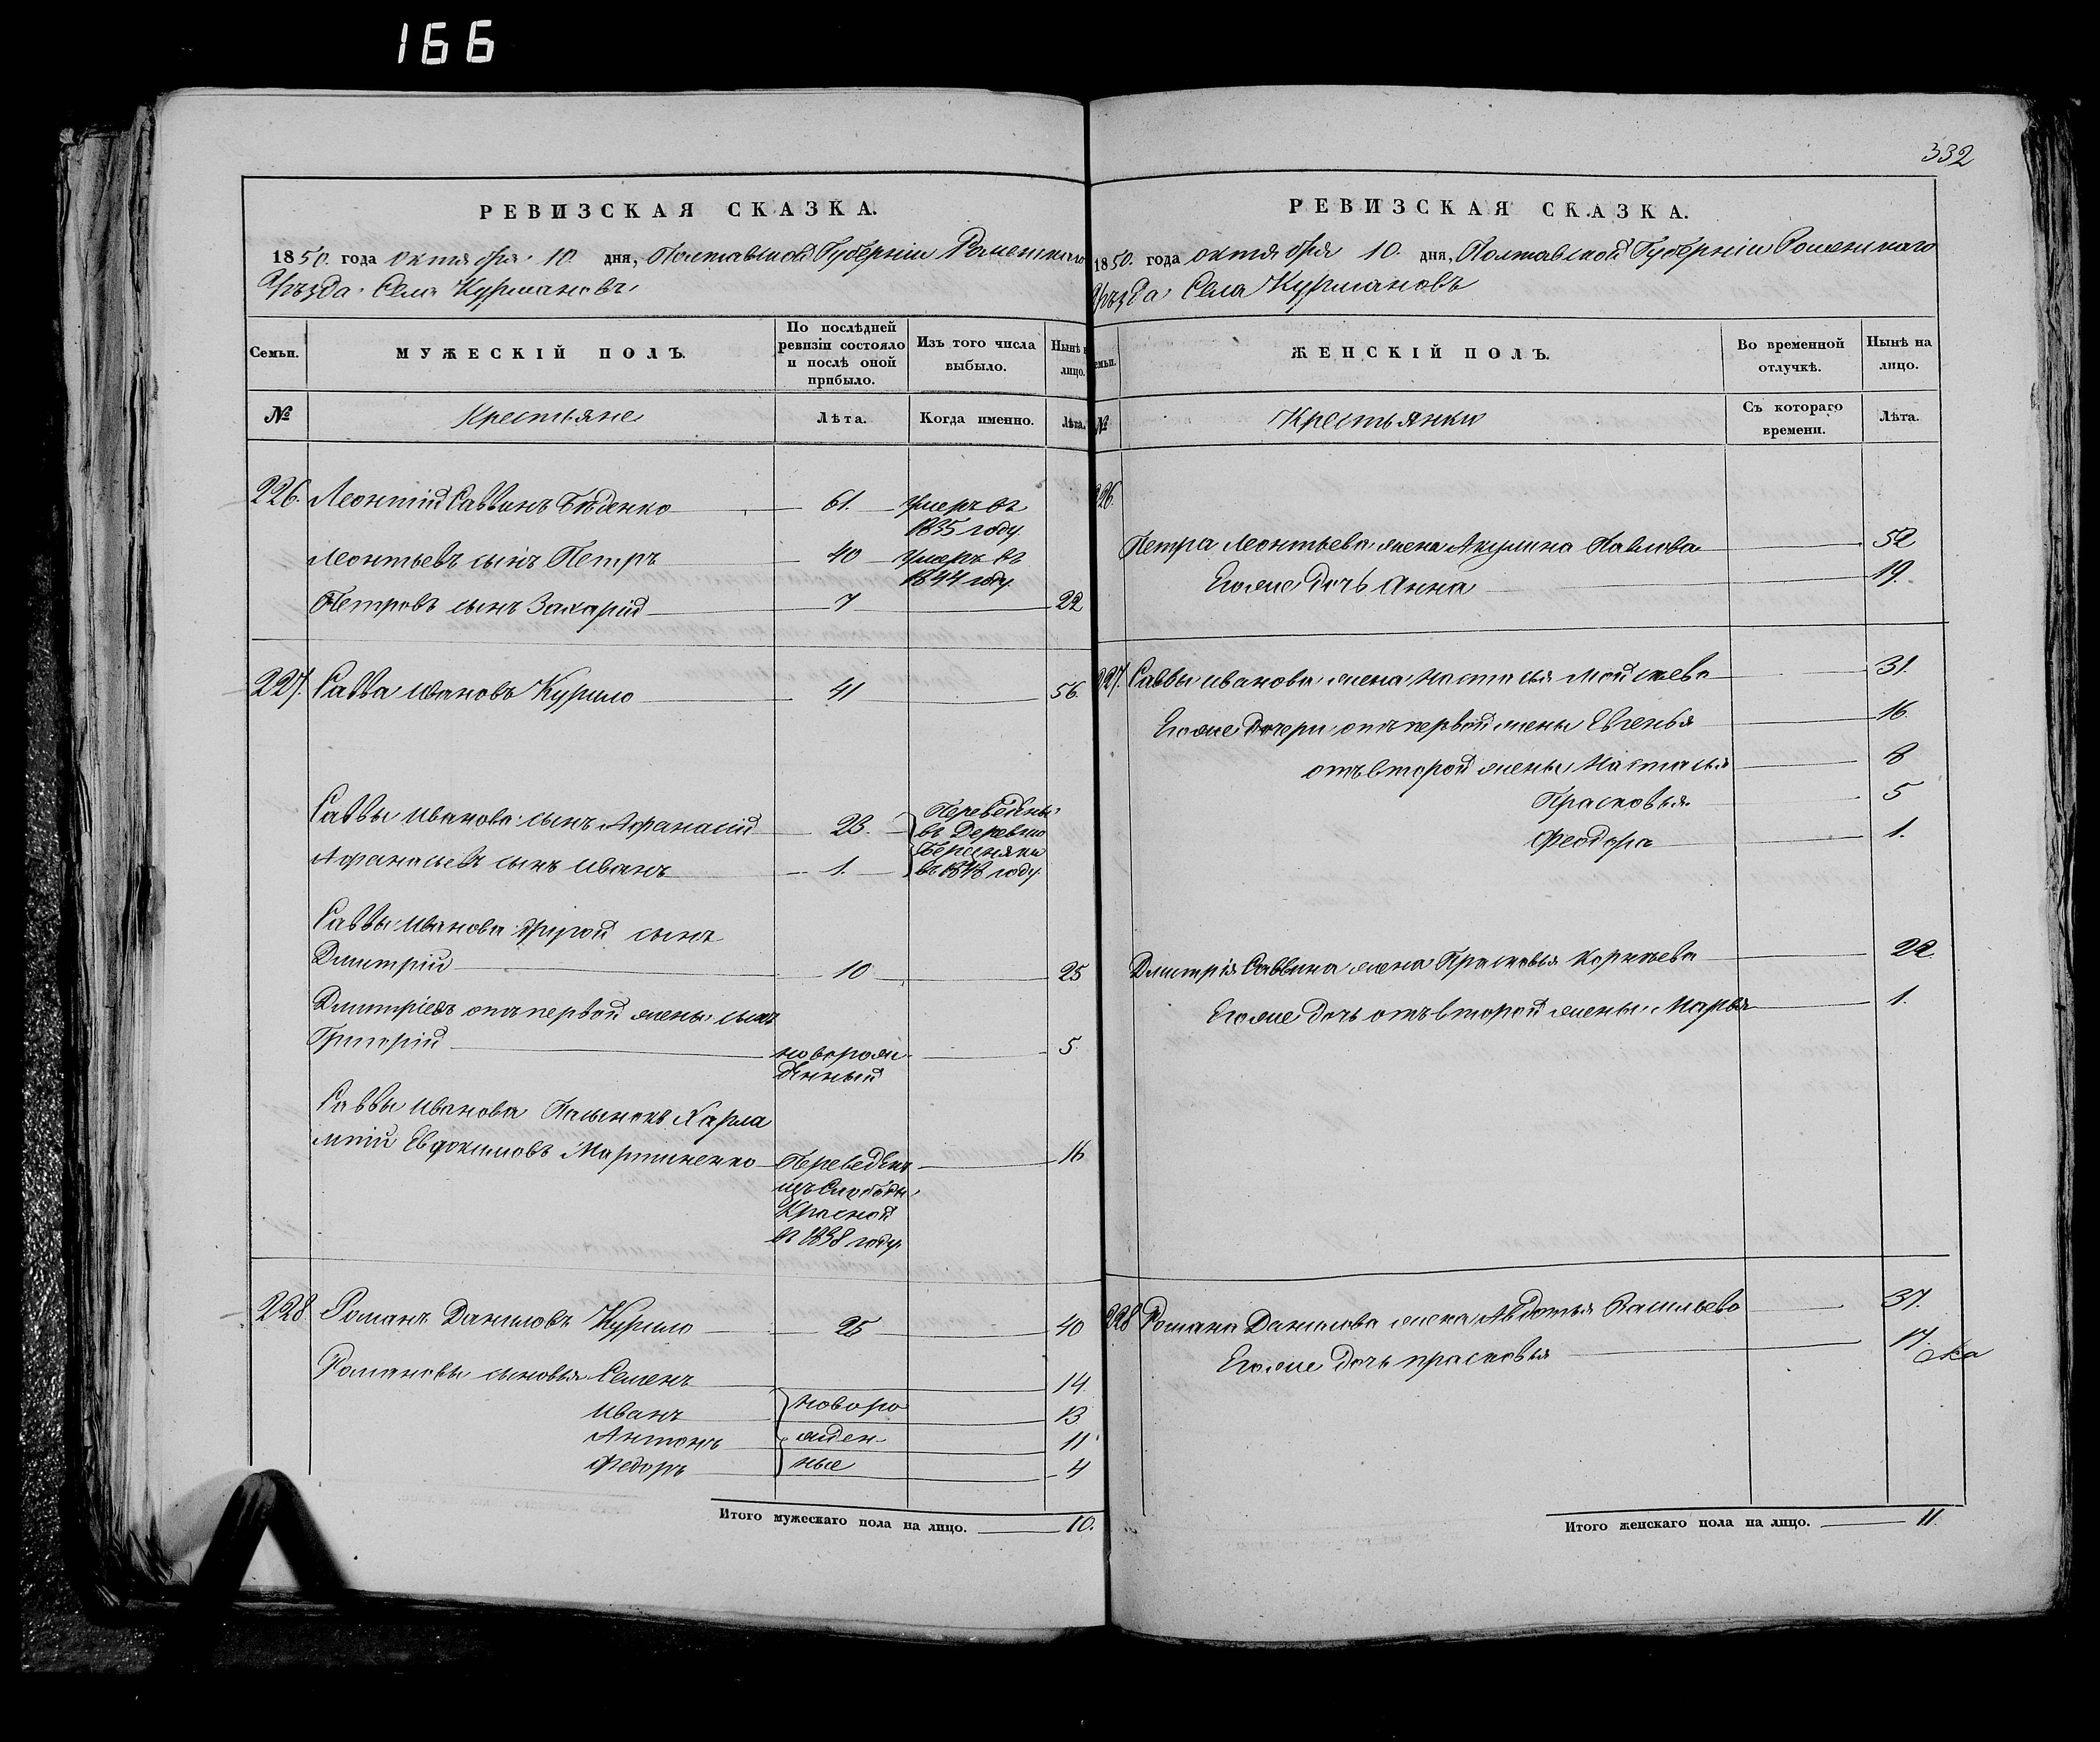 166
332
РЕВИЗСКАЯ СКАЗКА.
1850. года октября 10. дня, Полтавской Губерніи Роменскаго
Уѣзда Села Курмановъ
Семьи.
МУЖЕСКІЙ ПОЛЪ.
По послѣдней ревизіи состояло и послѣ оной прибыло.
Изъ того числа выбыло.
Нынѣ на лицо.
№
Крестьяне
Лѣта.
Когда именно.
Лѣта.
226. Леонтій Саввинъ Бѣденко 61. Умеръ въ
1835 году
Леонтьевъ сынъ Петръ 40 Умеръ въ
1844 году
Петровъ сынъ Захарій 7 22
227. Савва Ивановъ Курило 41 56
Саввы Иванова сынъ Афанасій 23.
Афанасьевъ сынъ Иванъ 1.
Переведены
въ Деревню
въ 1848 году
Саввы Иванова другой сынъ
Дмитрій 10 25
Дмитріевъ отъ первой жены сынъ
Григорій новорож 5
денный
Саввы Иванова Пасынокъ Харла
мпій Евдокимовъ Мартиненко Переведенъ 16
изъ Слободы
Красной
въ 1838 году
228 Романъ Даниловъ Курило 25 40
Романовы сыновья Семенъ 14
Иванъ новоро 13
Антонъ жден 11
Федоръ ные 4
Итого мужескаго пола на лицо. 10.
РЕВИЗСКАЯ СКАЗКА.
1850. года октября 10. дня, Полтавской Губерніи Роменскаго
Уѣзда Села Курмановъ
Семьи.
ЖЕНСКІЙ ПОЛЪ.
Во временной отлучкѣ.
Нынѣ на лицо.
№
Крестьянки
Съ котораго времени.
Лѣта.
226.
Петра Леонтьева жена Акулина Павлова 52
Егоже дочь Анна 19.
227. Саввы Иванова жена Настасья Мойсеева 31.
Егоже дочери отъ первой жены Евгенья 16.
отъ второй жены Настасья 8
Прасковья 5
Феодора 1.
Дмитрія Саввина жена Прасковья Корнѣева 22.
Егоже дочь отъ второй жены Марья 1.
228 Романа Данилова жена Авдотья Васильева 37.
Егоже дочь Прасковья 17.
Итого женскаго пола на лицо. 11.